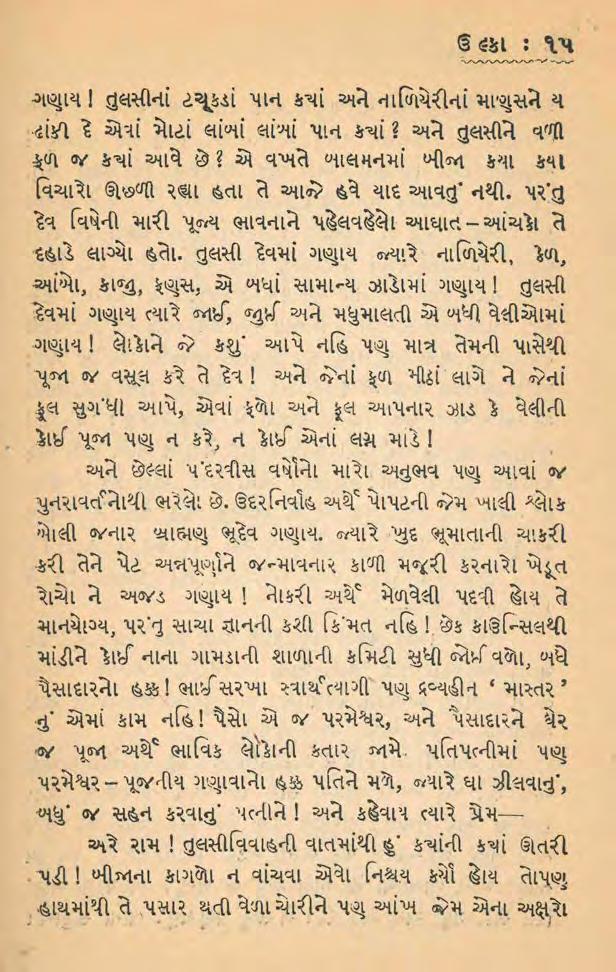 ઉલ્કા : ૧૫
ગણાય ! તુલસીનાં ટચૂકડાં પાન કયાં અને નાળિયેરીનાં માણસને ય
ઢાંકી દે એવાં મોટાં લાંબાં લાંબાં પાન કયાં ? અને તુલસીને વળી
ફળ જ કયાં આવે છે ? એ વખતે બાલમનમાં બીજા કયા કયા
વિચારો ઊછળી રહ્યા હતા તે આજે હવે યાદ આવતું નથી. પરંતુ
દેવ વિષેની મારી પૂજ્ય ભાવનાને પહેલવહેલો આઘાત – આંચકો તે
દહાડે લાગ્યો હતો. તુલસી દેવમાં ગણાય જ્યારે નાળિયેરી, કેળ,
આંબો, કાજુ, ફણસ, એ બધાં સામાન્ય ઝાડોમાં ગણાય ! તુલસી
દેવમાં ગણાય ત્યારે જાઈ, જુઈ અને મધુમાલતી એ બધી વેલીઓમાં
ગણાય ! લોકોને જે કશું આપે નહિ પણ માત્ર તેમની પાસેથી
પૂજા જ વસૂલ કરે તે દેવ ! અને જેનાં ફળ મીઠાં લાગે ને જેનાં
ફૂલ સુગંધી આપે, એવાં ફળો અને ફૂલ આપનાર ઝાડ કે વેલીની
કોઈ પૂજા પણ ન કરે, ન કોઈ એનાં લગ્ન માંડે !
અને છેલ્લાં પંદરવીસ વર્ષોનો મારો અનુભવ પણ આવાં જ
પુનરાવર્તનોથી ભરેલો છે. ઉદરનિર્વાહ અર્થે પોપટની જેમ ખાલી શ્લોક
બોલી જનાર બ્રાહ્મણ ભૂદેવ ગણાય. જ્યારે ખુદ ભૂમાતાની ચાકરી
કરી તેને પેટ અન્નપૂર્ણાને જન્માવનાર કાળી મજૂરી કરનારો ખેડૂત
રોચો ને અજડ ગણાય ! નોકરી અર્થે મેળવેલી પદવી હોય તે
માનયોગ્ય, પરંતુ સાચા જ્ઞાનની કશી કિંમત નહિ ! છેક કાઉન્સિલથી
માંડીને કોઈ નાના ગામડાની શાળાની કમિટી સુધી જોઈ વળો, બધે
પૈસાદારનો હક્ક ! ભાઈ સરખા સ્વાર્થત્યાગી પણ દ્રવ્યહીન ‘ માસ્તર ’
નું એમાં કામ નહિ ! પૈસો એ જ પરમેશ્વર, અને પૈસાદારને ઘેર
જ પૂજા અર્થે ભાવિક લોકોની કતાર જામે. પતિપત્નીમાં પણ
પરમેશ્વર – પૂજનીય ગણાવાનો હક્ક પતિને મળે, જ્યારે ઘા ઝીલવાનું,
બધું જ સહન કરવાનું પત્નીને ! અને કહેવાય ત્યારે પ્રેમ—
અરે રામ ! તુલસીવિવાહની વાતમાંથી હું કયાંની કયાં ઊતરી
પડી ! બીજાના કાગળો ન વાંચવા એવો નિશ્ચય કર્યો હોય તોપણ
હાથમાંથી તે પસાર થતી વેળા ચોરીને પણ આંખ જેમ એના અક્ષરો